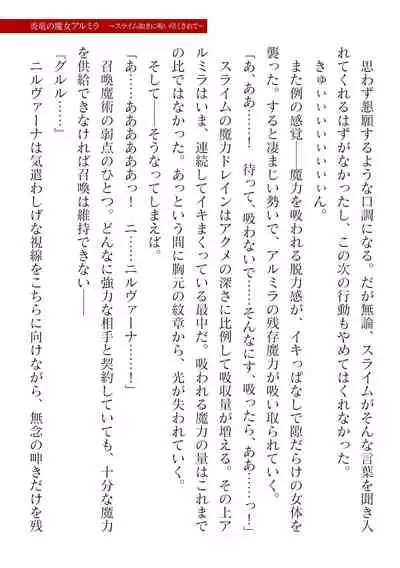 炎竜の魔女アルミラ　～スライム如きに吸い尽くされて～
　思わず懇願するような口調になる。だが無論、スライムがそんな言葉を聞き入
れてくれるはずがなかったし、この次の行動もやめてはくれなかった。
　きゅぃぃぃぃぃぃん。
　また例の感覚――魔力を吸われる脱力感が、イキっぱなしで隙だらけの女体を
襲った。すると凄まじい勢いで、アルミラの残存魔力が吸い取られていく。
「あ、ああ……！　待って、吸わないで……そんなにす、吸ったら、ああ……っ！」
　スライムの魔力ドレインはアクメの深さに比例して吸収量が増える。その上ア
ルミラはいま、連続してイキまくっている最中だ。吸われる魔力の量はこれまで
の比ではなかった。あっという間に胸元の紋章から、光が失われていく。
　そして――そうなってしまえば。
「あ……ああああああっ！　ニ……ニルヴァーナ……！」
　召喚魔術の弱点のひとつ。どんなに強力な相手と契約していても、十分な魔力
を供給できなければ召喚は維持できない――
『グルル……』
　ニルヴァーナは気遣わしげな視線をこちらに向けながら、無念の呻きだけを残